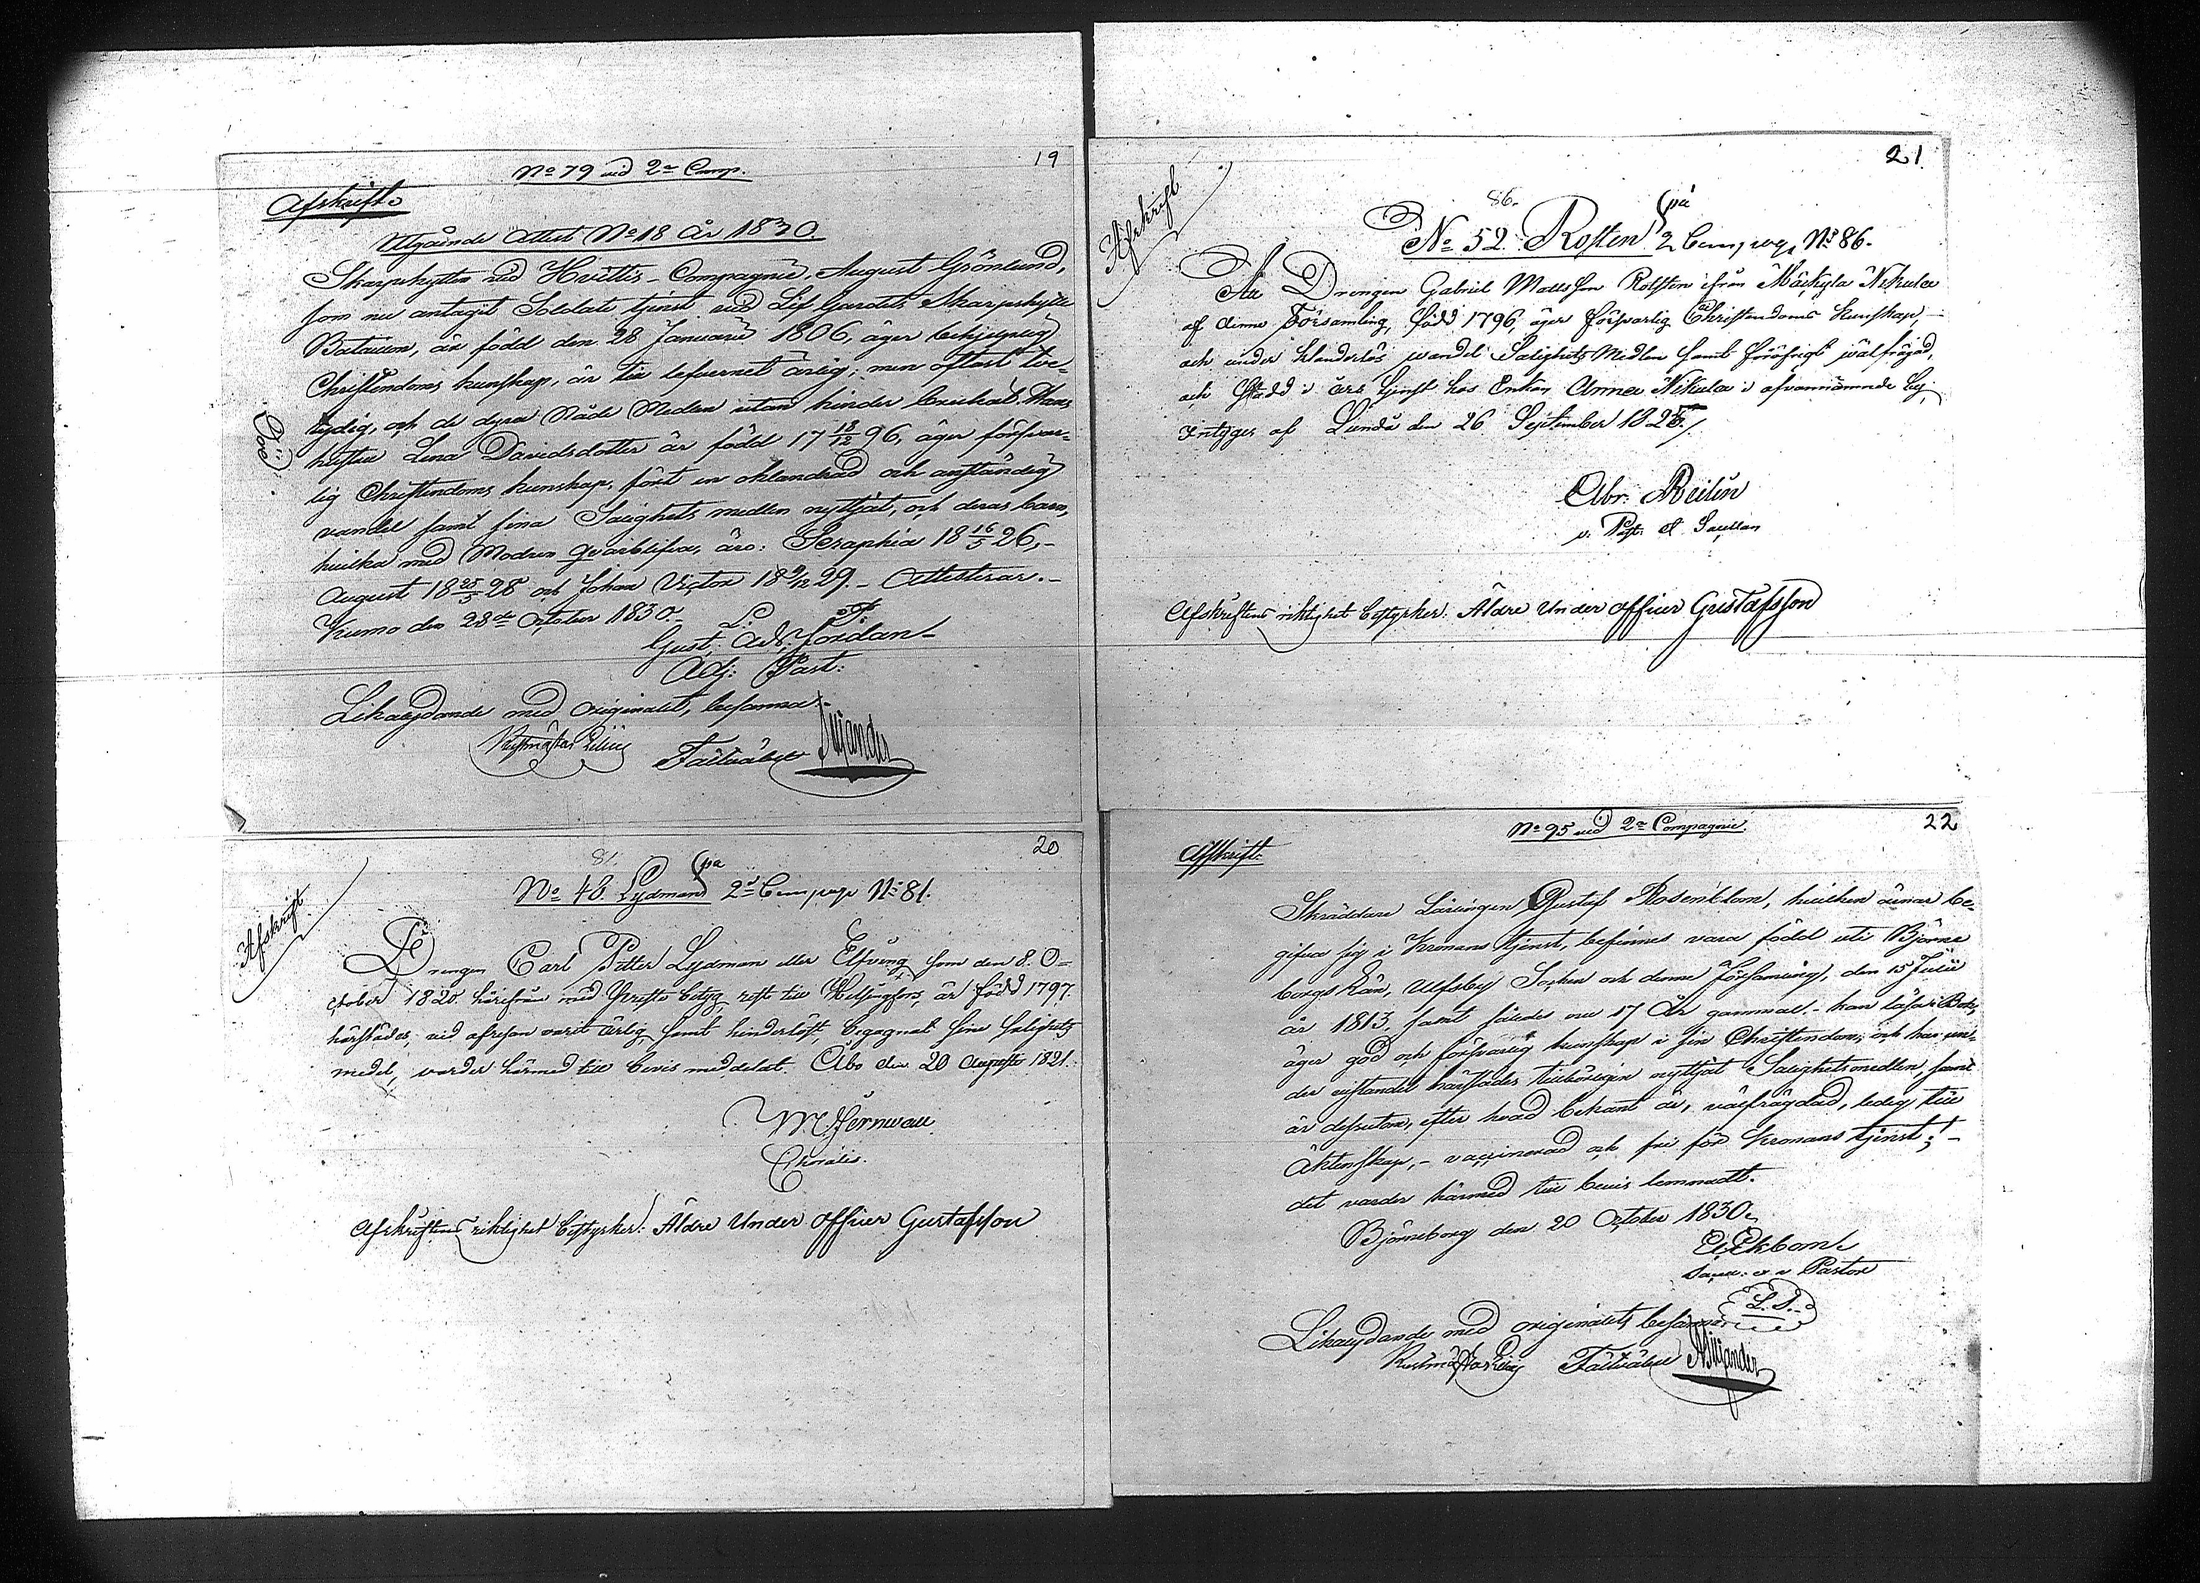 19
No 79 vid 2a Comp.
Afskrift.
Utgående Attest No 18 År 1830.
Skarpskytten vid Hvittis-Compagnie, August Grönlund,
som nu antagit Soldats tjenst vid Lif Gardets Skarpskytte
Bataillon, är född den 28 Januarii 1806, äger behjelpelig
Christendoms kunskap, är till lefvernet ärlig; men oftast tve-
tydig, och de dyra Nåde Medlen utan hinder brukat. Hans
hustru Lena Davidsdotter är född 17 18/12 96, äger försvar-
lig Christendoms kunskap, fört en oklandrad och anständig
vandel samt sina Salighets medlen nyttjat, och deras barn,
hvilka med Modren qvarblifva, äro: Seraphia 18 16/5 26,-
August 18 25/5 28 och Johan Victor 18 9/12 29.- Attesterar.-
Kumo den 28de October 1830.
L. S.
Gust. Ad. Jordan-
Adj: Past:
Död
Likalydande med originalet, besanna-
Fältväbel
20
81.
på
No 48. Lydman 2a Compagn No 81.
Afskrift
Drengen Carl Petter Lydman eller Elfving som den 8. O=
ctober 1820. härifrån med Prestebetyg rest till Helsingfors, är född 1797.
härstädes, vid afresan varit ärlig, samt hinderlöst begagnat sina salighets
medel, varder härmed till bevis meddelat. Åbo den 20 Augusti 1821.
Choralis.
Afskriftens riktighet bestyrker: Äldre Under Officer Gustafsson
21.
86.
på
Afskrift
No 52. Rosten 2 Compagn, No 86.
At Drengen Gabriel Mattsson Rosten ifrån Mäckylä Nikula
af denna Församling, född 1796, äger försvarlig Christendoms kunskap
och under klanderlös wandel Salighets Medlen samt föröfrigt wälfräjdad,
och städd i års tjenst hos Enkan Anna Nikula i ofvannämnde by,
Intygar af Lundå den 26 September 1825./
Abr. Reilin
v. Past. & Sacellan
Afskriftens riktighet bestyrker: Äldre Under Officer Gustafsson
22
No 95 vid 2a Compagnie.
Afskrift.
Skräddare Lärlingen Gustaf Rosenblom, hvilken ärnar be-
gifva sig i Kronans tjenst, befinnes vara född uti Björne
borgs Län, Ulfsby Socken och denne Församling, den 15 Julii
år 1813, samt således nu 17 År gammal.- han läser i Bok,
äger god och försvarlig kunskap i sin Christendom; och har un-
der vistandet härstädes tillbörligen nyttjat Salighetsmedlen, samt
är dessutom, efter hvad bekant är, välfrägdad, ledig till
Äktenskap,- vaccinerad och fri för Kronans tjenst;-
det varder härmed till bevis lemnadt.
Björneborg den 20 October 1830.
Ekbom.
Sacell: o v Pastor
L. S.
Likalydande med originalet, besanna:
Fältväbel